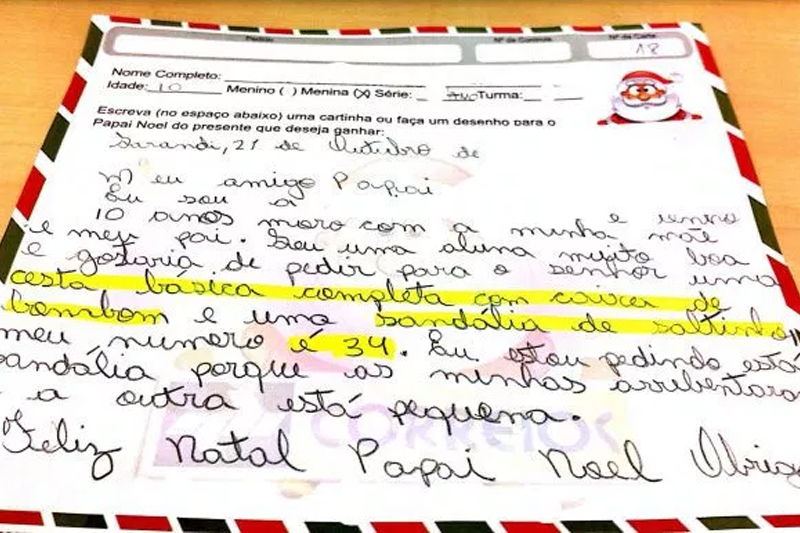 Pedido
Nº de Controle
Nº da Carta
18
Nome Completo:
Idade: 10 Menino ( ) Menina (X) Série: Turma:
Escreva (no espaço abaixo) uma cartinha ou faça um desenho para o
Papai Noel do presente que deseja ganhar:
Sarandi, 21 de Outubro de
Meu amigo Papai
Eu sou a
10 anos moro com a minha mãe e
e meu pai. Sou uma aluna muito boa
e gostaria de pedir para o senhor uma
cesta básica completa com caixa de
bombom e uma sandália de saltinho"
meu numero é 34. Eu estou pedindo esta
sandália porque as minhas arrebentara
a outra está pequena.
CORREIOS
Feliz Natal Papai Noel Obriga